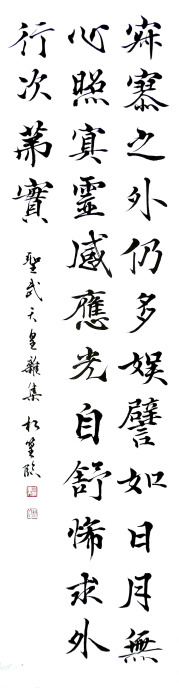 寂寥之外仍多娱譬如日月無
心照冥靈感應光自舒悕求外
行次苐實
聖武天皇雜集 松篁臨